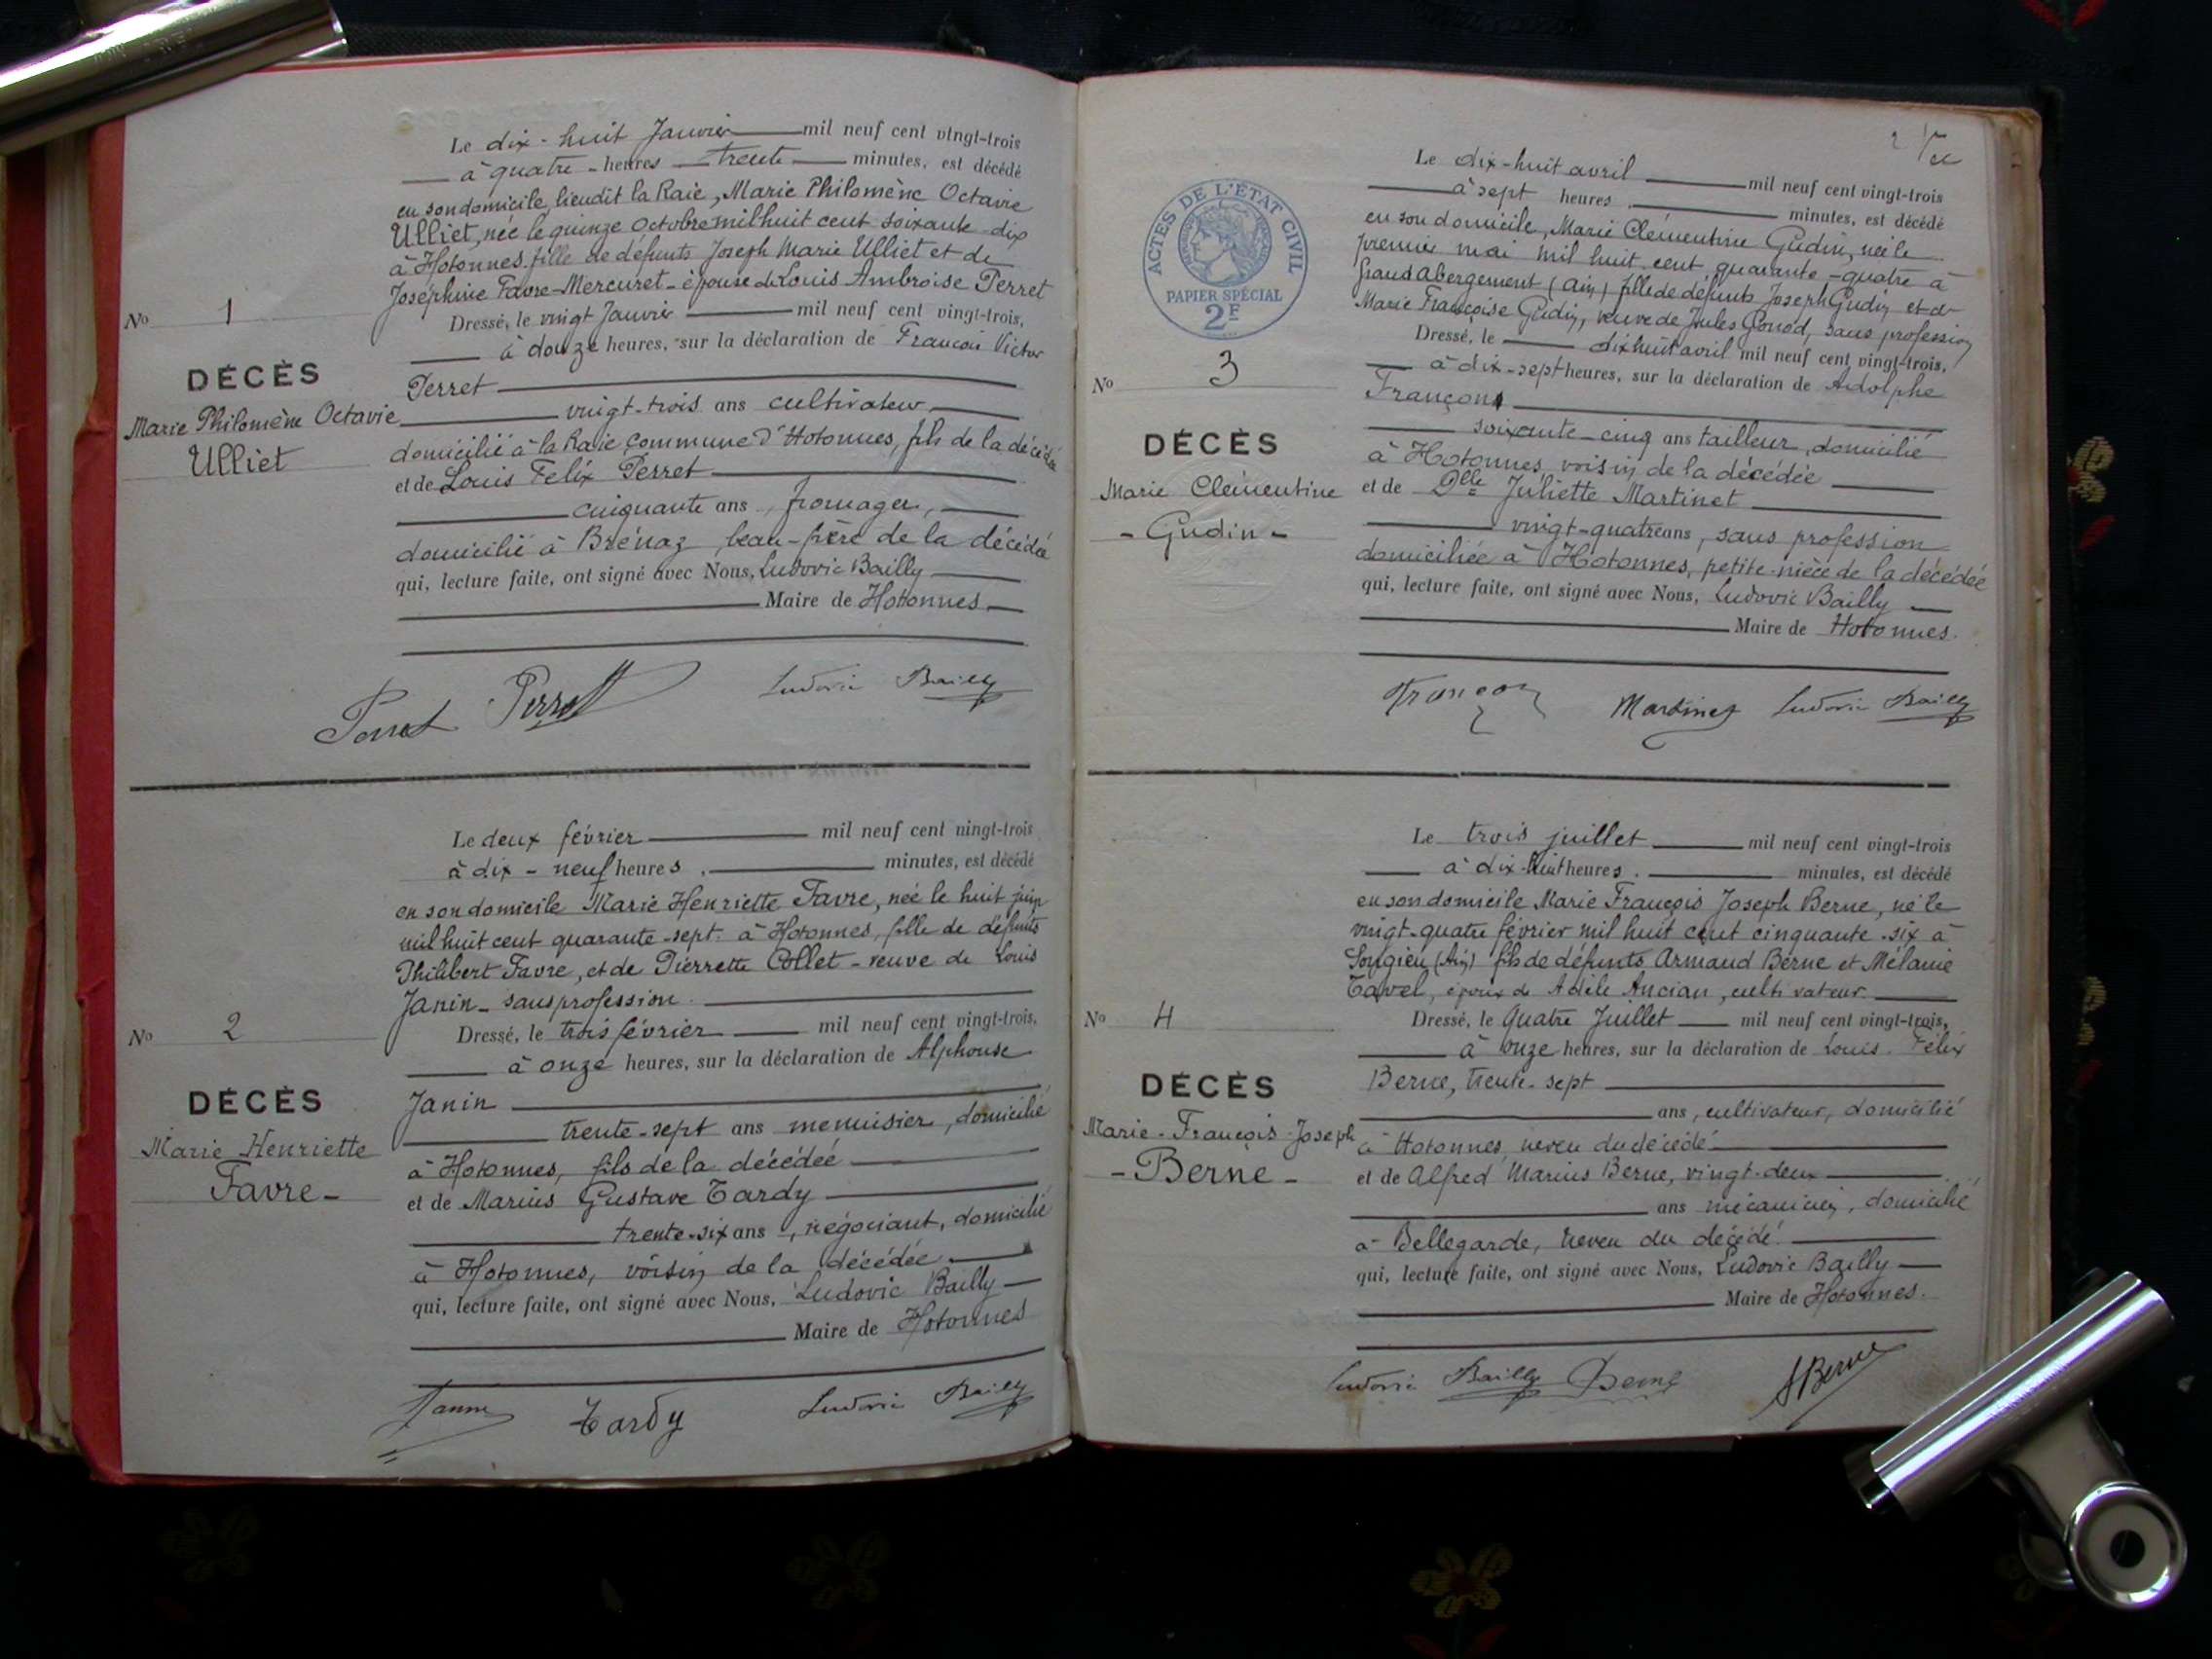 Le dix-huit Janvier mil neuf cent vingt-trois
à quatre heures trente minutes, est décédé
en son domicile, lieudit la Raie, Marie Philomène Octavie
Ulliet, née le quinze Octobre mil huit cent soixante-dix
à Hotonnes, fille de défunts Joseph Marie Ulliet et de
Joséphine Favre-Mercuret - épouse de Louis Ambroise Perret
No 1
Dressé, le vingt Janvier mil neuf cent vingt-trois,
à douze heures, sur la déclaration de François Victor
DÉCÈS
Perret
Marie Philomène Octavie
Ulliet
vingt-trois ans cultivateur,
domicilié à la Raie commune d'Hotonnes, fils de la décédée
et de Louis Felix Perret
cinquante ans, fromager,
domicilié à Brénaz, beau-frère de la décédée
qui, lecture faite, ont signé avec Nous, Ludovic Bailly
Maire de Hotonnes
Perret Perret Ludovic Bailly
Le deux février mil neuf cent vingt-trois
à dix-neuf heures, minutes, est décédé
en son domicile Marie Henriette Favre, née le huit juin
mil huit cent quarante-sept à Hotonnes, fille de défunts
Philibert Favre, et de Pierrette Collet - veuve de Louis
Janin - sans profession.
No 2
Dressé, le trois février mil neuf cent vingt-trois,
à onze heures, sur la déclaration de Alphonse
DÉCÈS
Janin
Marie Henriette
Favre-
trente-sept ans menuisier, domicilié
à Hotonnes, fils de la décédée
et de Marius Gustave Tardy
trente-six ans, négociant, domicilié
à Hotonnes, voisin de la décédée
qui, lecture faite, ont signé avec Nous, Ludovic Bailly
Maire de Hotonnes
Janin Tardy Ludovic Bailly
2
ACTES DE L'ÉTAT CIVIL
PAPIER SPÉCIAL
2F
Le dix-huit avril mil neuf cent vingt-trois
à sept heures minutes, est décédé
en son domicile, Marie Clémentine Gudin, née le
premier mai mil huit cent quarante-quatre à
Grand abergement (Ain) fille de défunts Joseph Gudin et de
Marie Françoise Gudin, veuve de Jules Gonod, sans profession
No 3
Dressé, le dix huit avril mil neuf cent vingt-trois,
à dix-sept heures, sur la déclaration de Adolphe
Françon
DÉCÈS
Marie Clémentine
- Gudin -
soixante-cinq ans tailleur, domicilié
à Hotonnes, voisin de la décédée
et de Dlle Juliette Martinet
vingt-quatre ans, sans profession
domiciliée à Hotonnes, petite-nièce de la décédée
qui, lecture faite, ont signé avec Nous, Ludovic Bailly
Maire de Hotonnes.
Françon Martinet Ludovic Bailly
Le trois juillet mil neuf cent vingt-trois
à dix-huit heures. minutes, est décédé
en son domicile Marie François Joseph Berne, né le
vingt-quatre février mil huit cent cinquante-six à
Songieu (Ain) fils de défunts Armand Berne et Mélanie
Tavel, époux de Adèle Ancian, cultivateur
No 4
Dressé, le Quatre Juillet mil neuf cent vingt-trois,
à onze heures, sur la déclaration de Louis Félix
DÉCÈS
Berne, trente-sept
Marie-François-Joseph
- Berne -
ans, cultivateur, domicilié
à Hotonnes, neveu du décédé
et de Alfred Marius Berne, vingt-deux
ans mécanicien, domicilié
à Bellegarde, neveu du décédé.
qui, lecture faite, ont signé avec Nous, Ludovic Bailly
Maire de Hotonnes.
Ludovic Bailly Berne ABerne